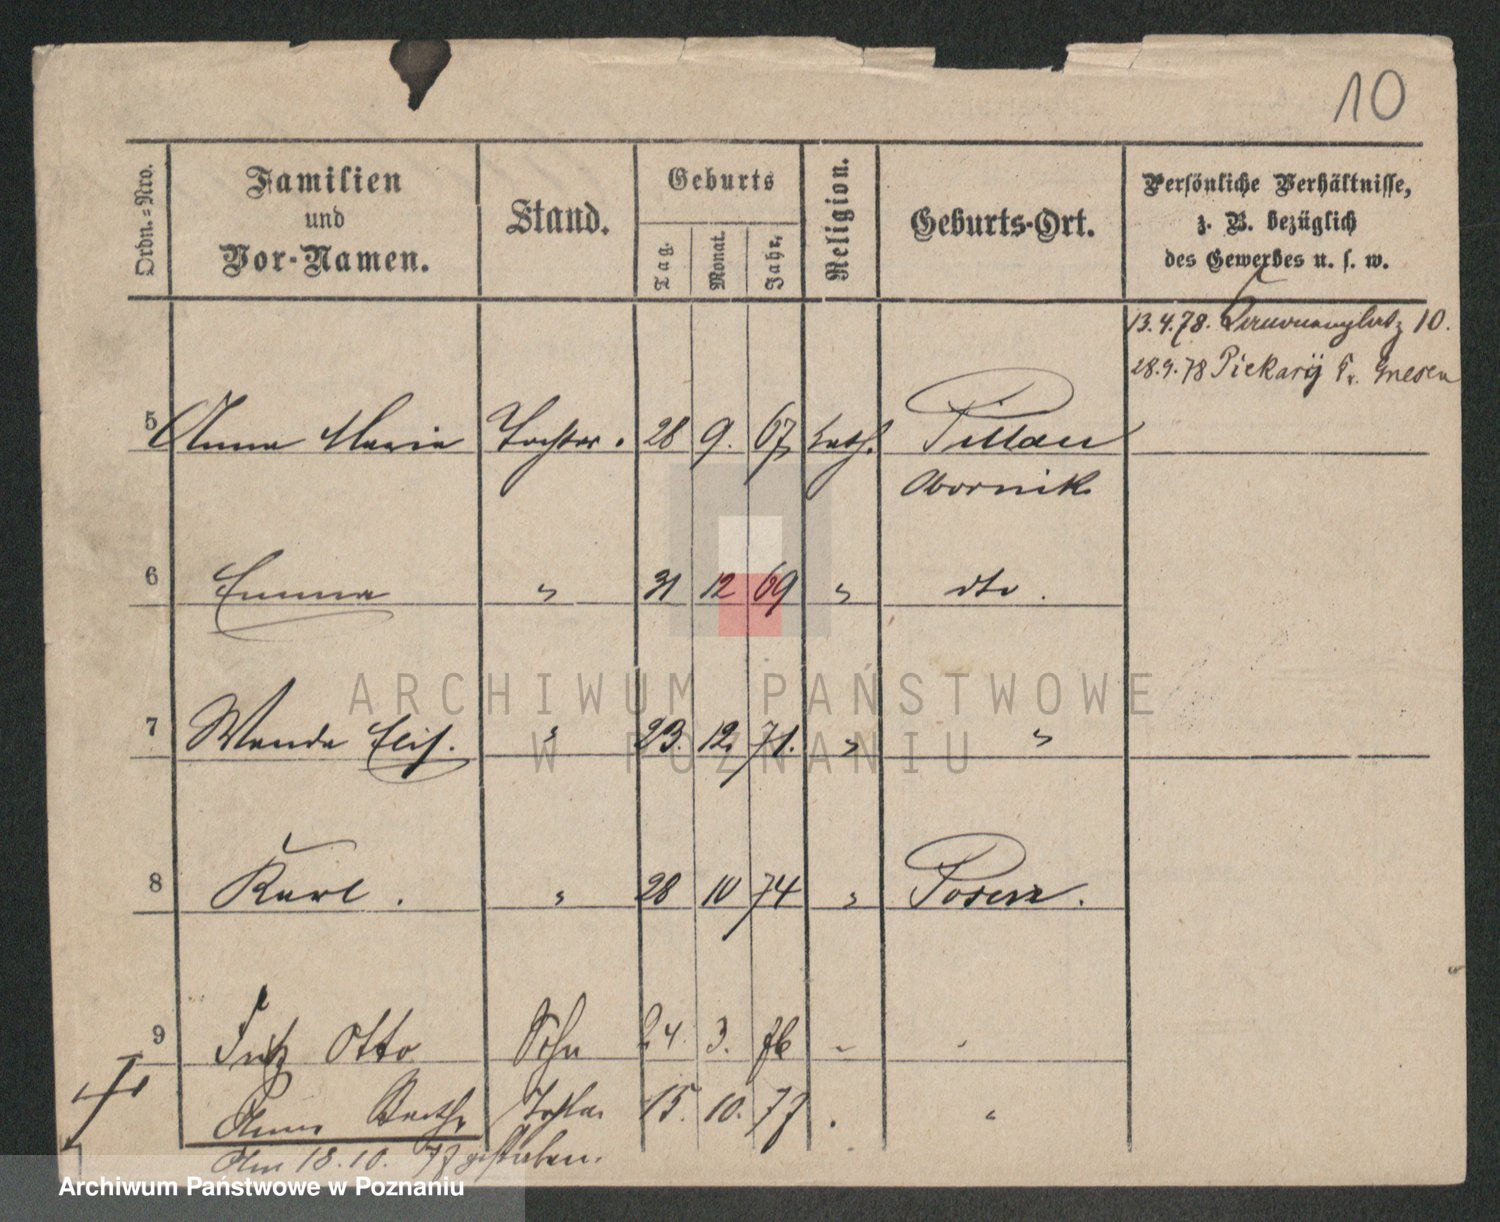 10
Ordn.=Nro.
Familien
und
Vor-Namen.
Stand.
Geburts
Tag.
Monat.
Jahr.
Religion.
Geburts-Ort.
Persönliche Verhältnisse,
z. B. bezüglich
des Gewerbes u. s. w.
13.4.78. 10.
28.9.78 Piekary Gnesen
5 Anna Maria Tochter. 28 9. 67 kath. Pillau
Obornik
6 Emma " 31 12 69 " dto.
7 Wanda Elis. " 23. 12. 71. " "
8 Karl. " 28 10 74 " Posen.
9 Fritz Otto Sohn 24. 3. 76 " "
Anna Tochter 15. 10. 77 "
Am 18.10.77 gestorben.
ARCHIWUM PAŃSTWOWE
W POZNANIU
Archiwum Państwowe w Poznaniu